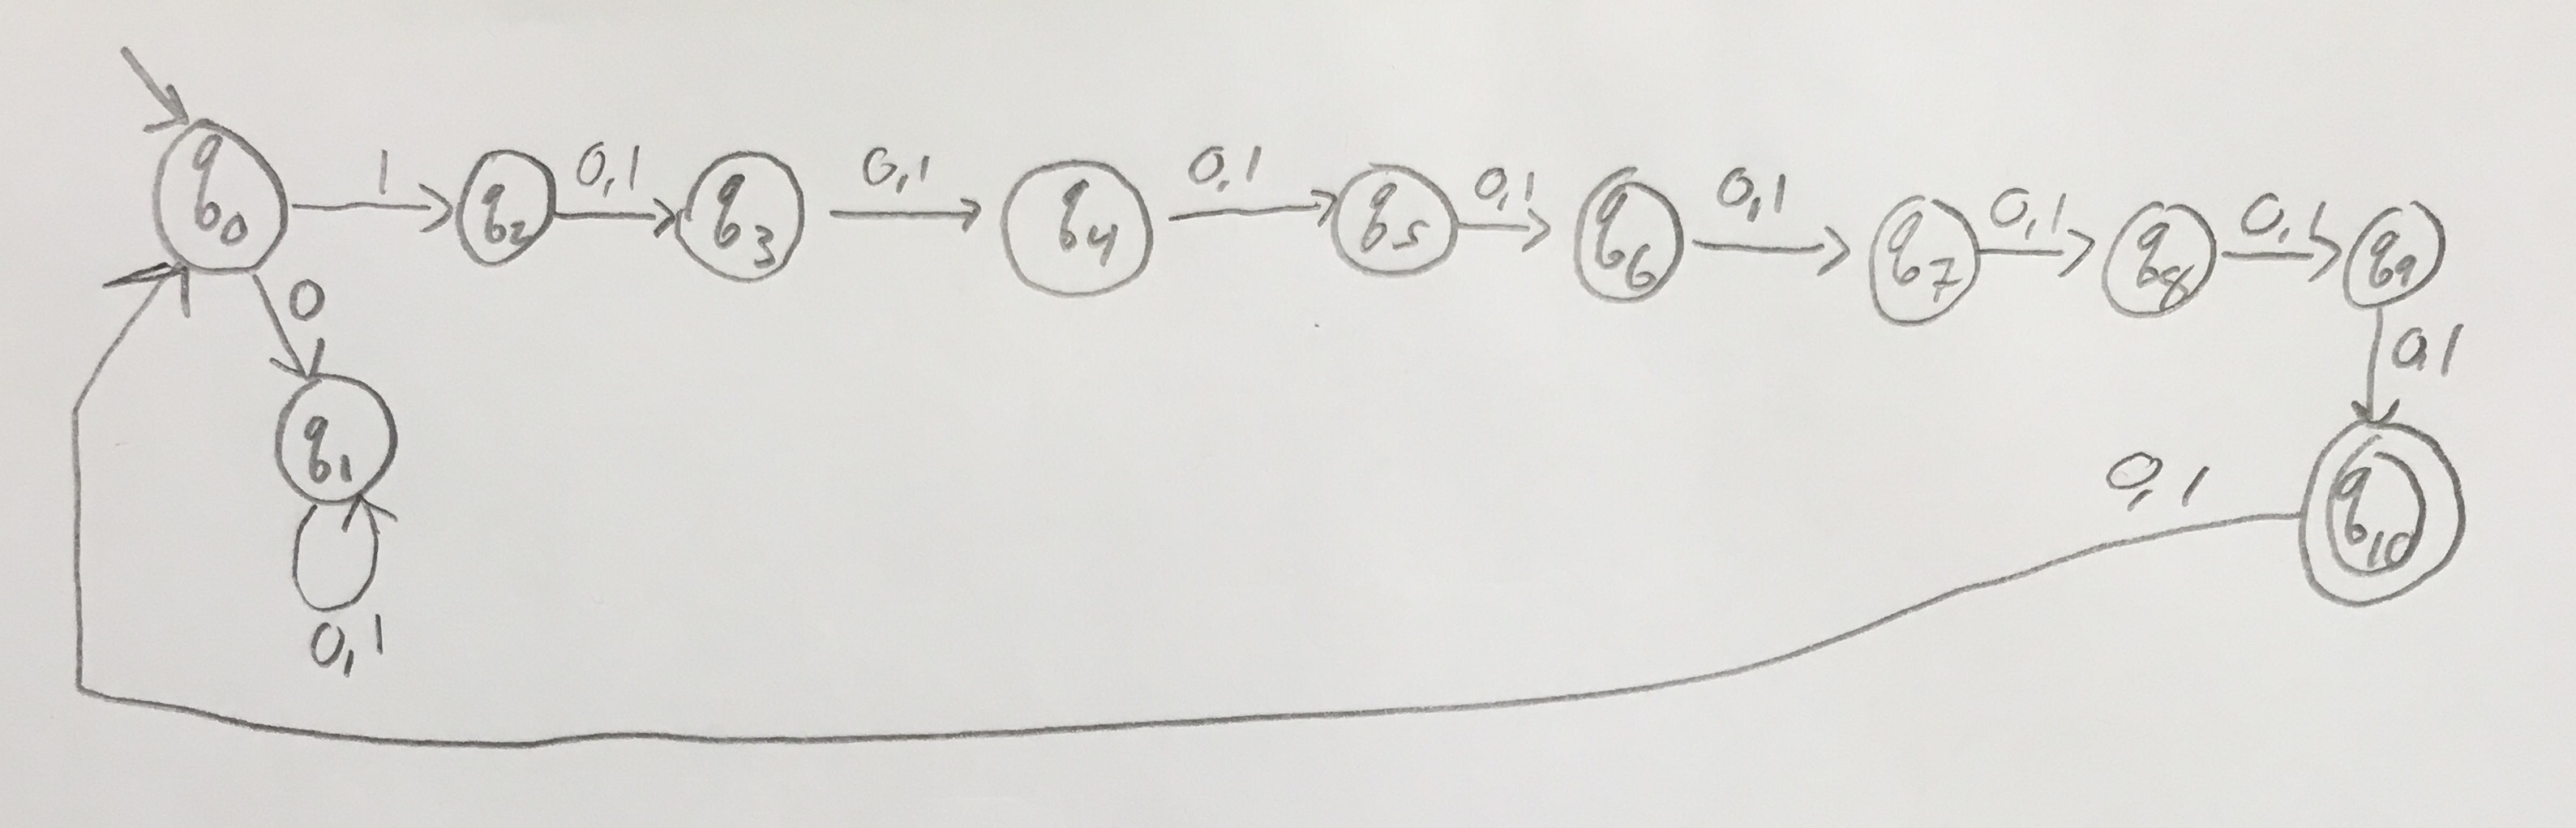 q0 1 q2 0,1 q3 0,1 q4 0,1 q5 0,1 q6 0,1 q7 0,1 q8 0,1 q9
0
0,1
q1
0,1
q10
0,1